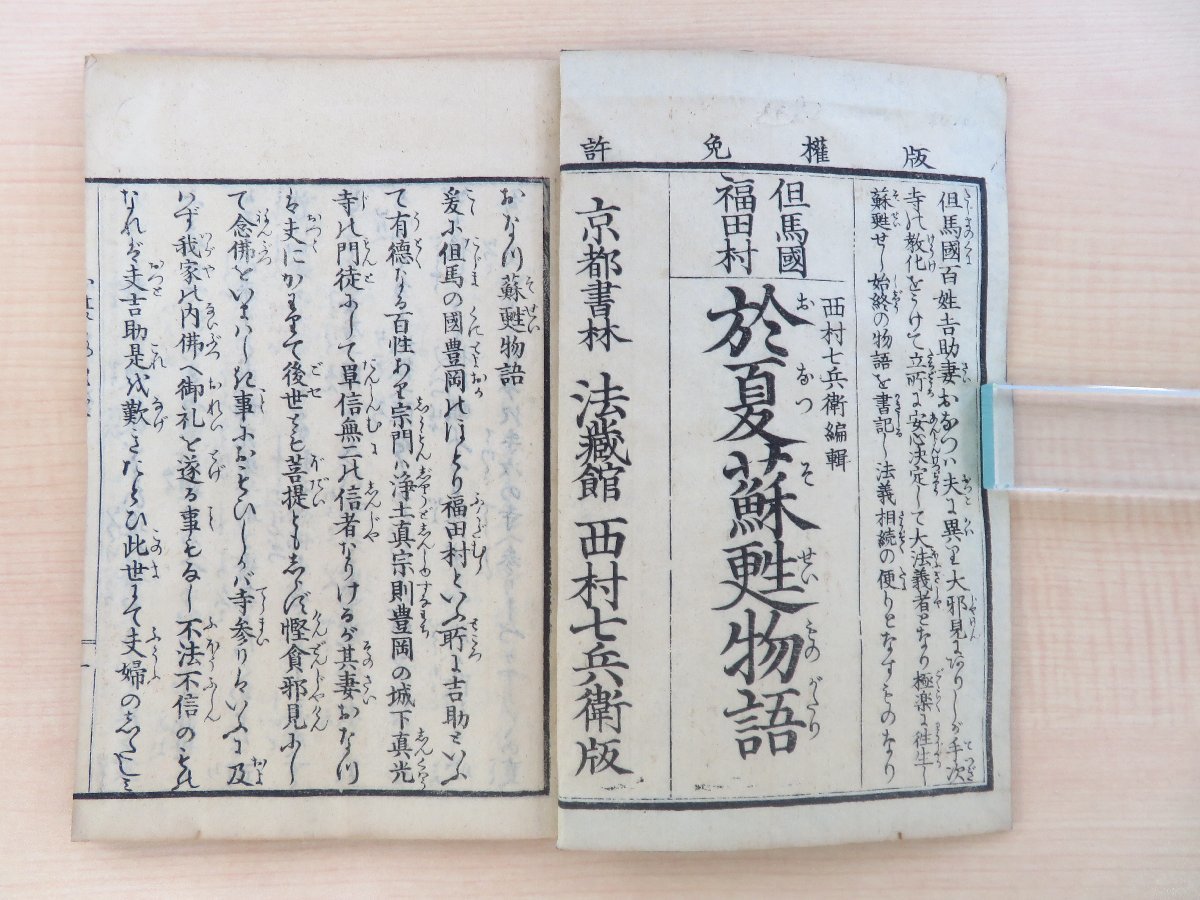 版權免許
但馬國百姓吉助妻おなつハ夫に異り大邪見にありしが手次
寺の教化をうけて立所に安心决定して大法義者となり極楽に往生し
蘇甦せし始終の物語を書記し法義相続の便りとなすものなり
但馬國
福田村
西村七兵衛編輯
於夏蘇甦物語
京都書林 法藏館 西村七兵衛版
おなつ蘇甦物語
爰に但馬の國豊岡のほとり福田村といふ所に吉助といふ
て有徳なる百性あり宗門ハ浄土真宗則豊岡の城下真光
寺の門徒にして單信無二の信者なりけるが其妻おなつ
ハ夫にかわりて後世とも菩提ともしらず慳貪邪見にし
て念佛といまハしき事におもひしかバ寺参りハいふに及
ばず我家の内佛へ御礼を遂る事もなし不法不信のもの
なれバ夫吉助是を歎きたとひ此世にて夫婦の